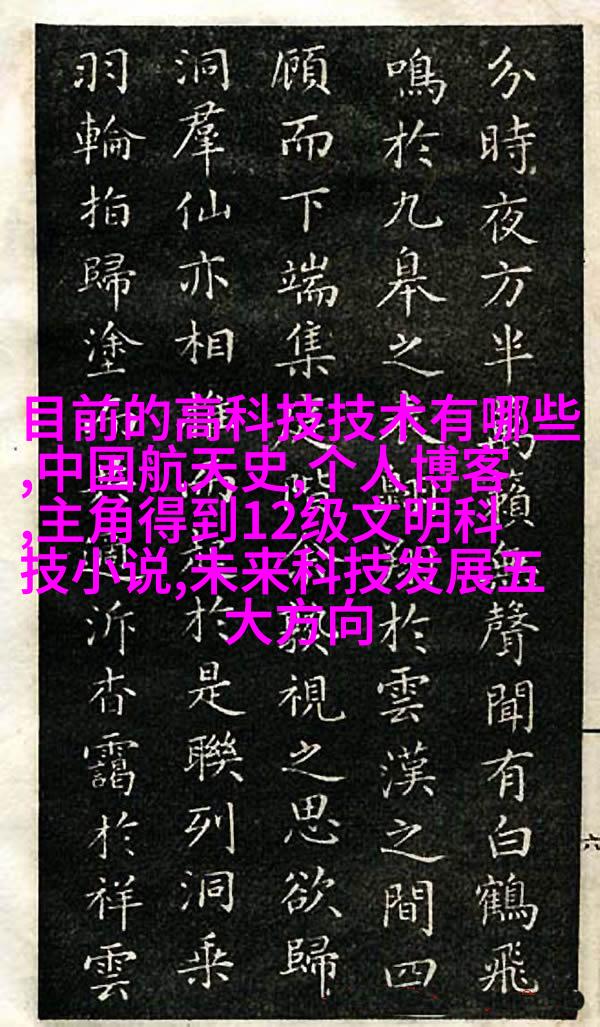 分時夜方半籟無聲聞有白鶴飛
鳴於九皋之於雲漢之間四
顧而下端集視之思欲歸
洞羣仙亦相於是聯列洞乘
羽輪拍歸塗泝杳靄於祥雲
目前的高科技技术有哪些
,中国航天史,个人博客
,主角得到12级文明科
技小说,未来科技发展五
大方向
六